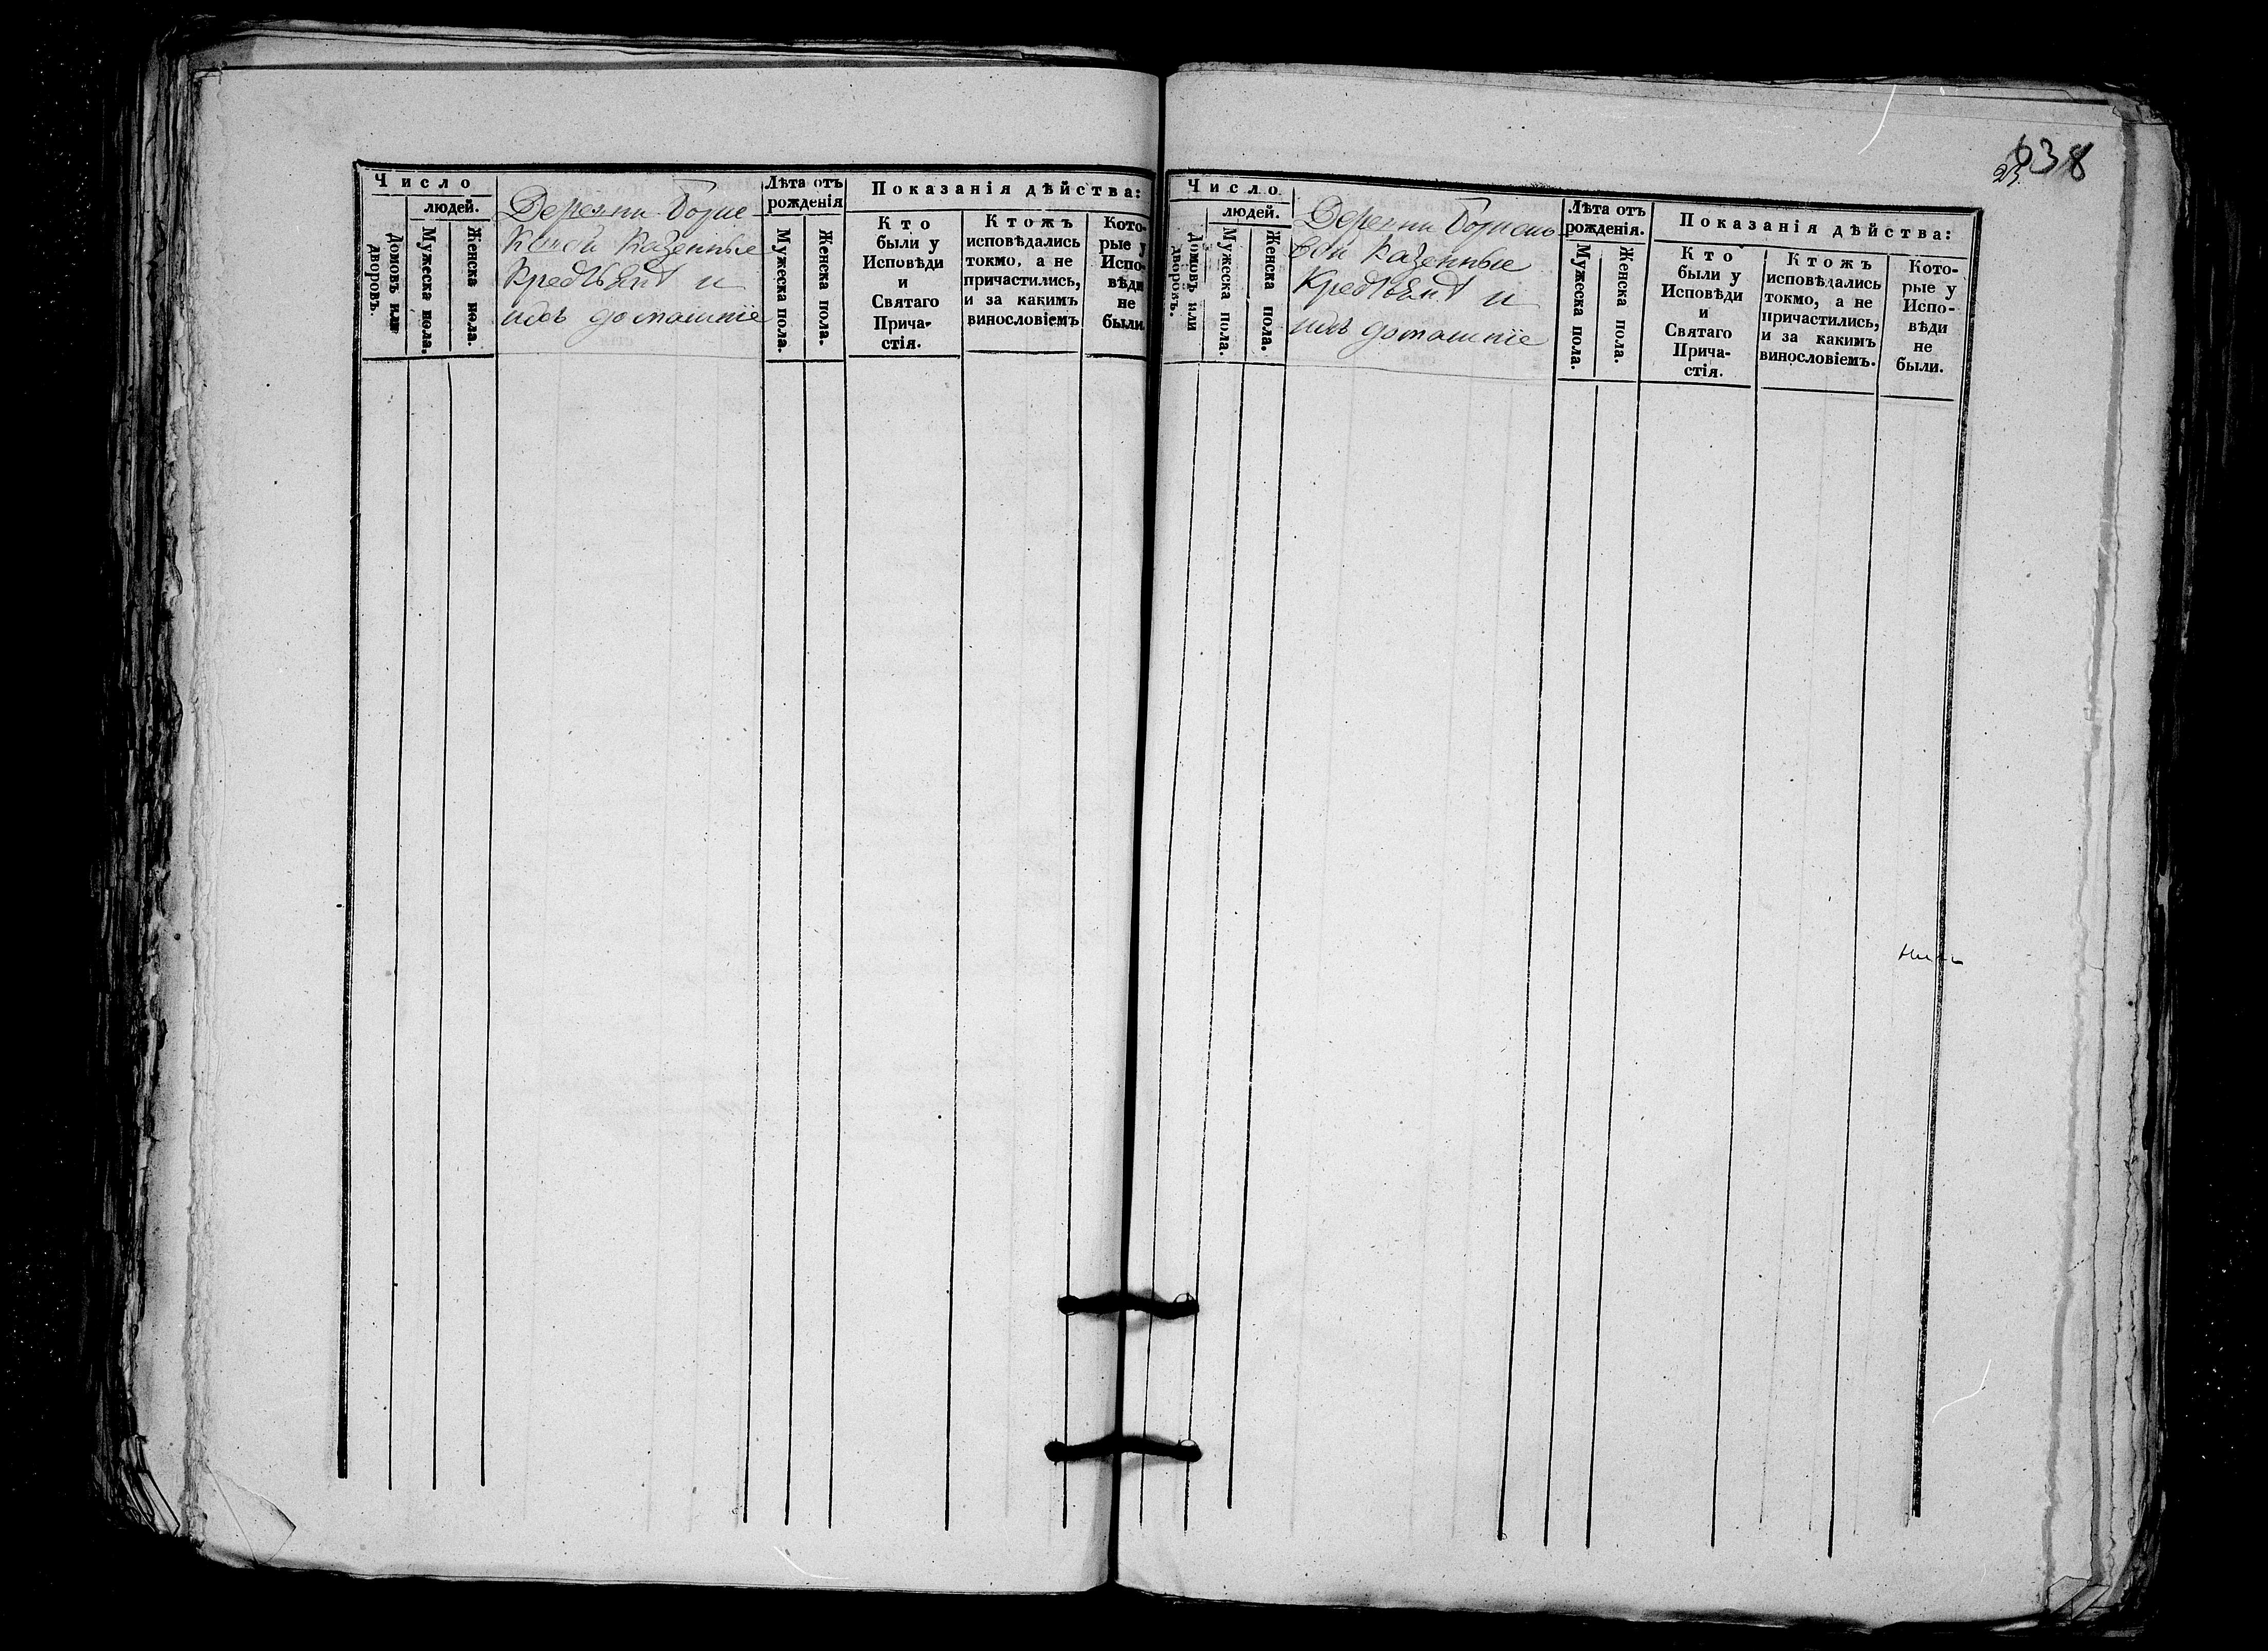 638
23.
Число
людей.
Домовъ или дворовъ.
Мужеска пола.
Женска пола.
Деревни
казенные
и
ихъ домашнїе
Лѣта отъ
рожденія
Мужеска пола.
Женска пола.
Показанія дѣйства:
Кто
были у
Исповѣди
и
Святаго
Прича-
стія.
Ктожъ
исповѣдались
токмо, а не
причастились,
и за какимъ
винословіемъ
Кото-
рые у
Испо-
вѣди
не
были.
Число
людей.
Домовъ или дворовъ.
Мужеска пола.
Женска пола.
Деревни
казенные
и
ихъ домашнїе
Лѣта отъ
рожденія.
Мужеска пола.
Женска пола.
Показанія дѣйства:
Кто
были у
Исповѣди
и
Святаго
Прича-
стія.
Ктожъ
исповѣдались
токмо, а не
причастились,
и за какимъ
винословіемъ.
Кото-
рые у
Испо-
вѣди
не
были.